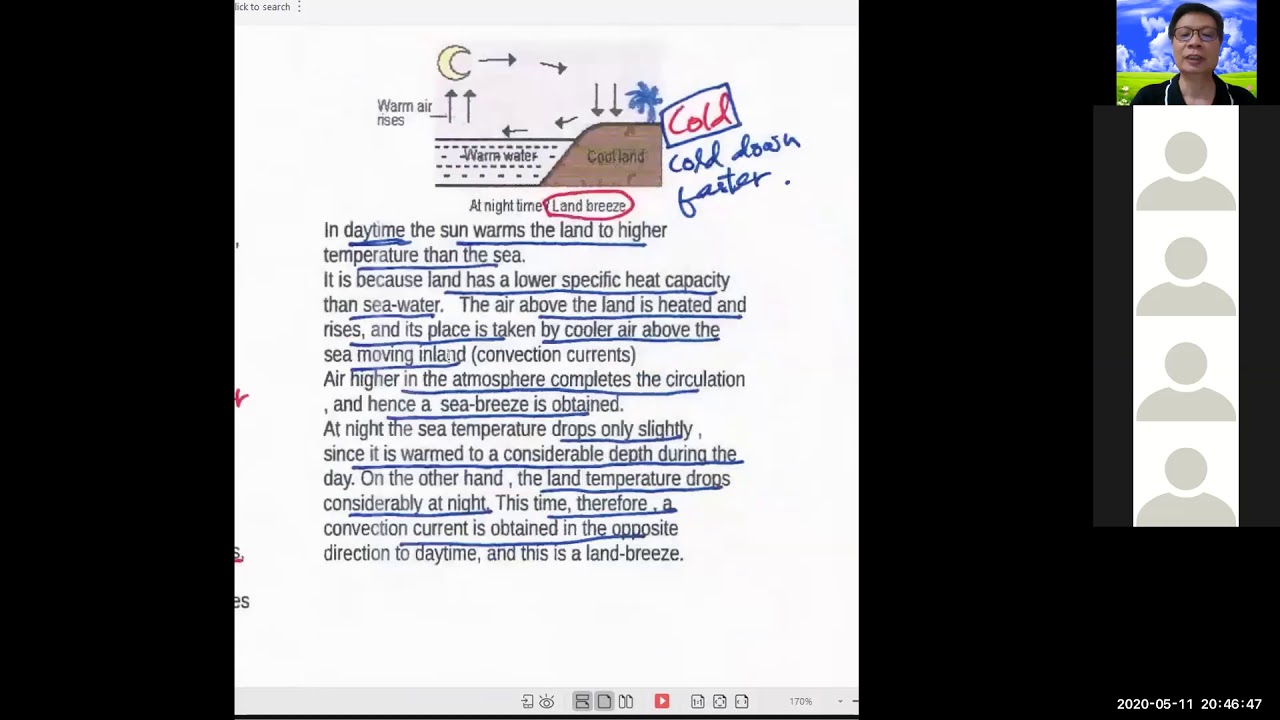 lick to search
Warm air
rises
Warm water
Cool land
Cold
cold down
faster.
At night time Land breeze
In daytime the sun warms the land to higher
temperature than the sea.
It is because land has a lower specific heat capacity
than sea-water. The air above the land is heated and
rises, and its place is taken by cooler air above the
sea moving inland (convection currents)
Air higher in the atmosphere completes the circulation
, and hence a sea-breeze is obtained.
At night the sea temperature drops only slightly ,
since it is warmed to a considerable depth during the
day. On the other hand , the land temperature drops
considerably at night. This time, therefore , a
convection current is obtained in the opposite
direction to daytime, and this is a land-breeze.
,
r
s,
es
1:1
170%
2020-05-11 20:46:47